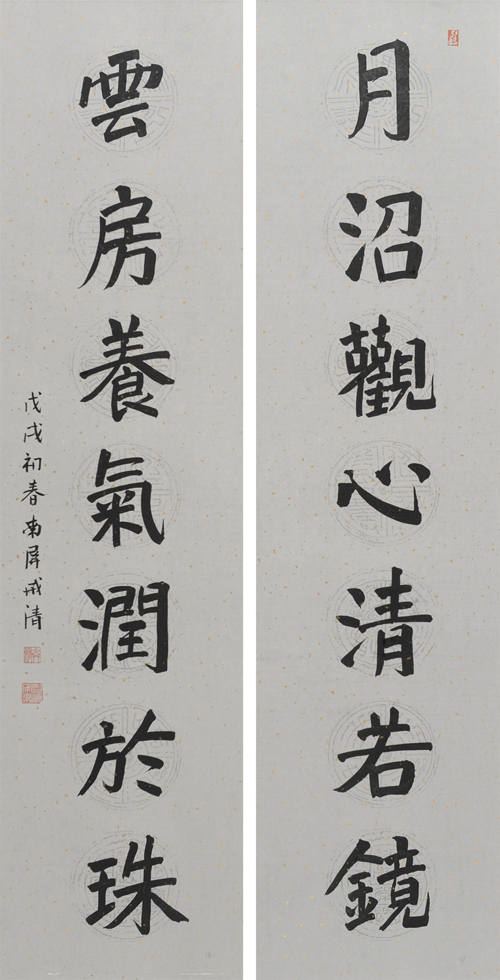 月沼觀心清若鏡
雲房養氣潤於珠
戊戌初春南屏戒清